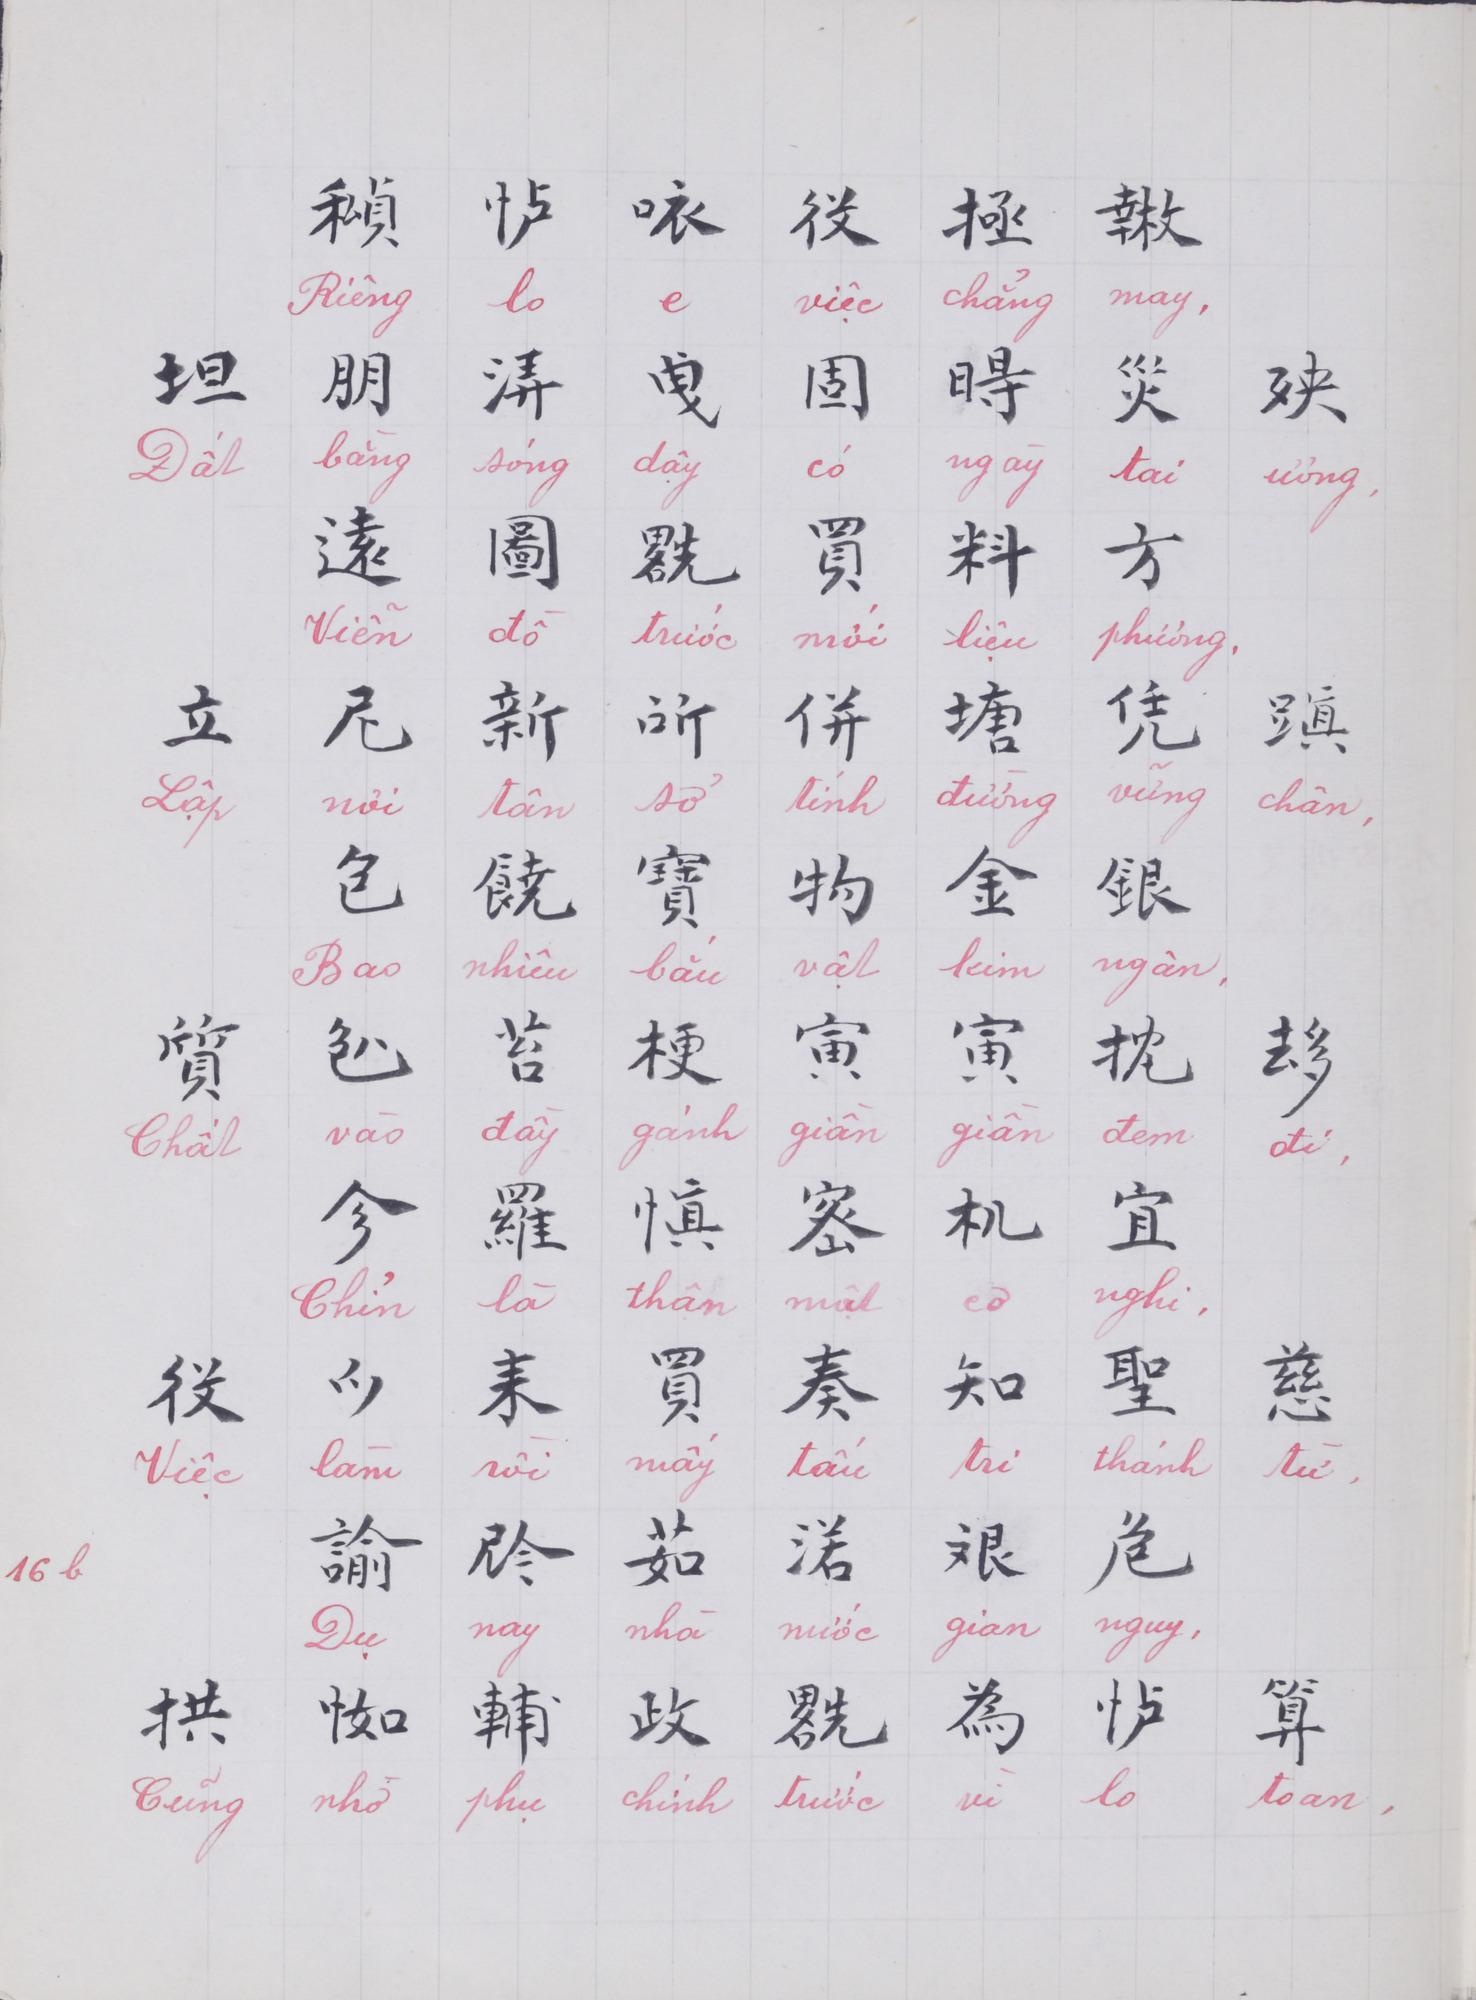 𥢆 怙 㕵 役 拯 𢆧
Riêng lo e việc chẳng may,
坦 朋 㳥 曳 固 㫷 災 殃
Đất bằng sóng dậy có ngày tai ương,
遠 圖 𠠩 買 料 方
Viễn đồ trước mới liệu phương,
立 尼 新 所 併 塘 凭 蹎
Lập nơi tân sở tính đường vững chân,
包 饒 寶 物 金 銀
Bao nhiêu báu vật kim ngân,
質 𠓨 苔 梗 寅 寅 抌 𠫾
Chất vào đầy gánh giần giần đem đi,
㐱 羅 慎 密 机 宜
Chỉn là thận mật cơ nghi,
役 𪜀 耒 買 奏 知 聖 慈
Việc làm rồi mấy tấu tri thánh từ,
諭 𠉞 茹 渃 艱 危
Dụ nay nhà nước gian nguy,
拱 𢘾 輔 政 𠠩 為 怙 算
Cũng nhờ phụ chính trước vì lo toan,
16 b